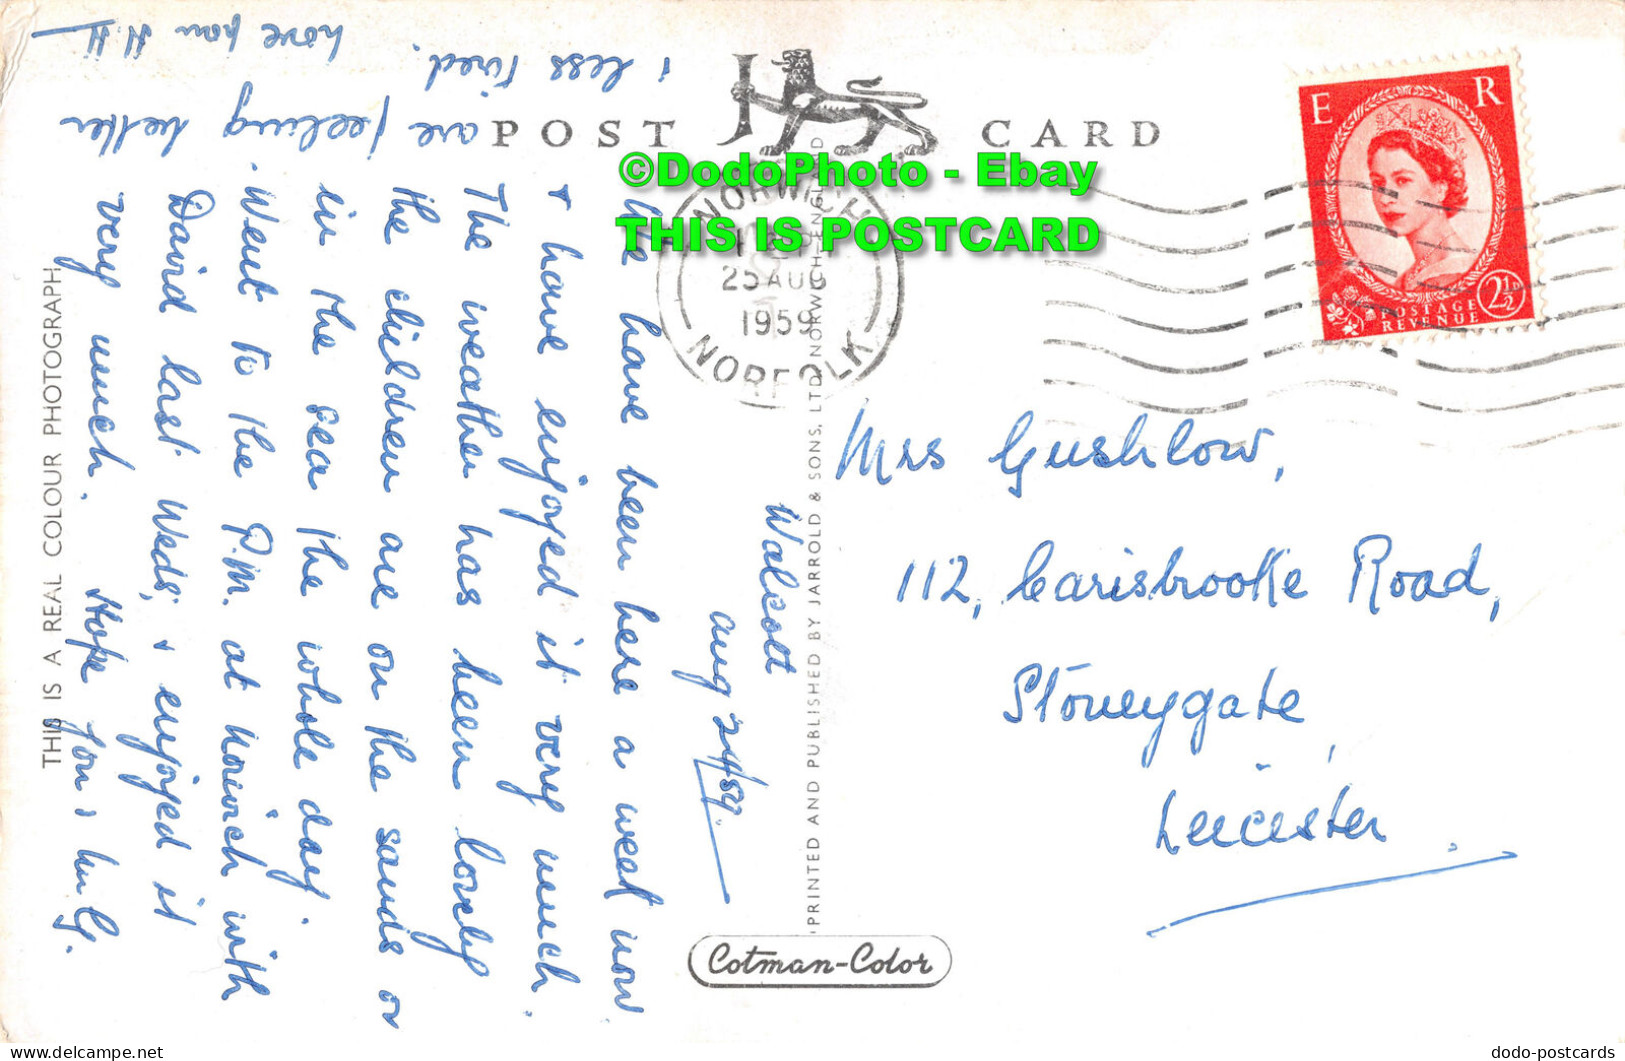 POST CARD
©DodoPhoto - Ebay
THIS IS POSTCARD
NORWICH
25 AUG
1959
NORFOLK
E R
POSTAGE
REVENUE
2½
Walcott
Aug 24/59.
We have been here a week now
+ have enjoyed it very much.
The weather has been lovely
the children are on the sands or
in the sea the whole day.
Went to the P.M. at Norwich with
David last Weds, + enjoyed it
very much. Hope you + Mr G.
are feeling better
+ less tired.
Love from H.H.
Mrs Gushlow,
112, Carisbrooke Road,
Stoneygate,
Leicester
THIS IS A REAL COLOUR PHOTOGRAPH
PRINTED AND PUBLISHED BY JARROLD & SONS, LTD. NORWICH, ENGLAND
Cotman-Color
dodo-postcards